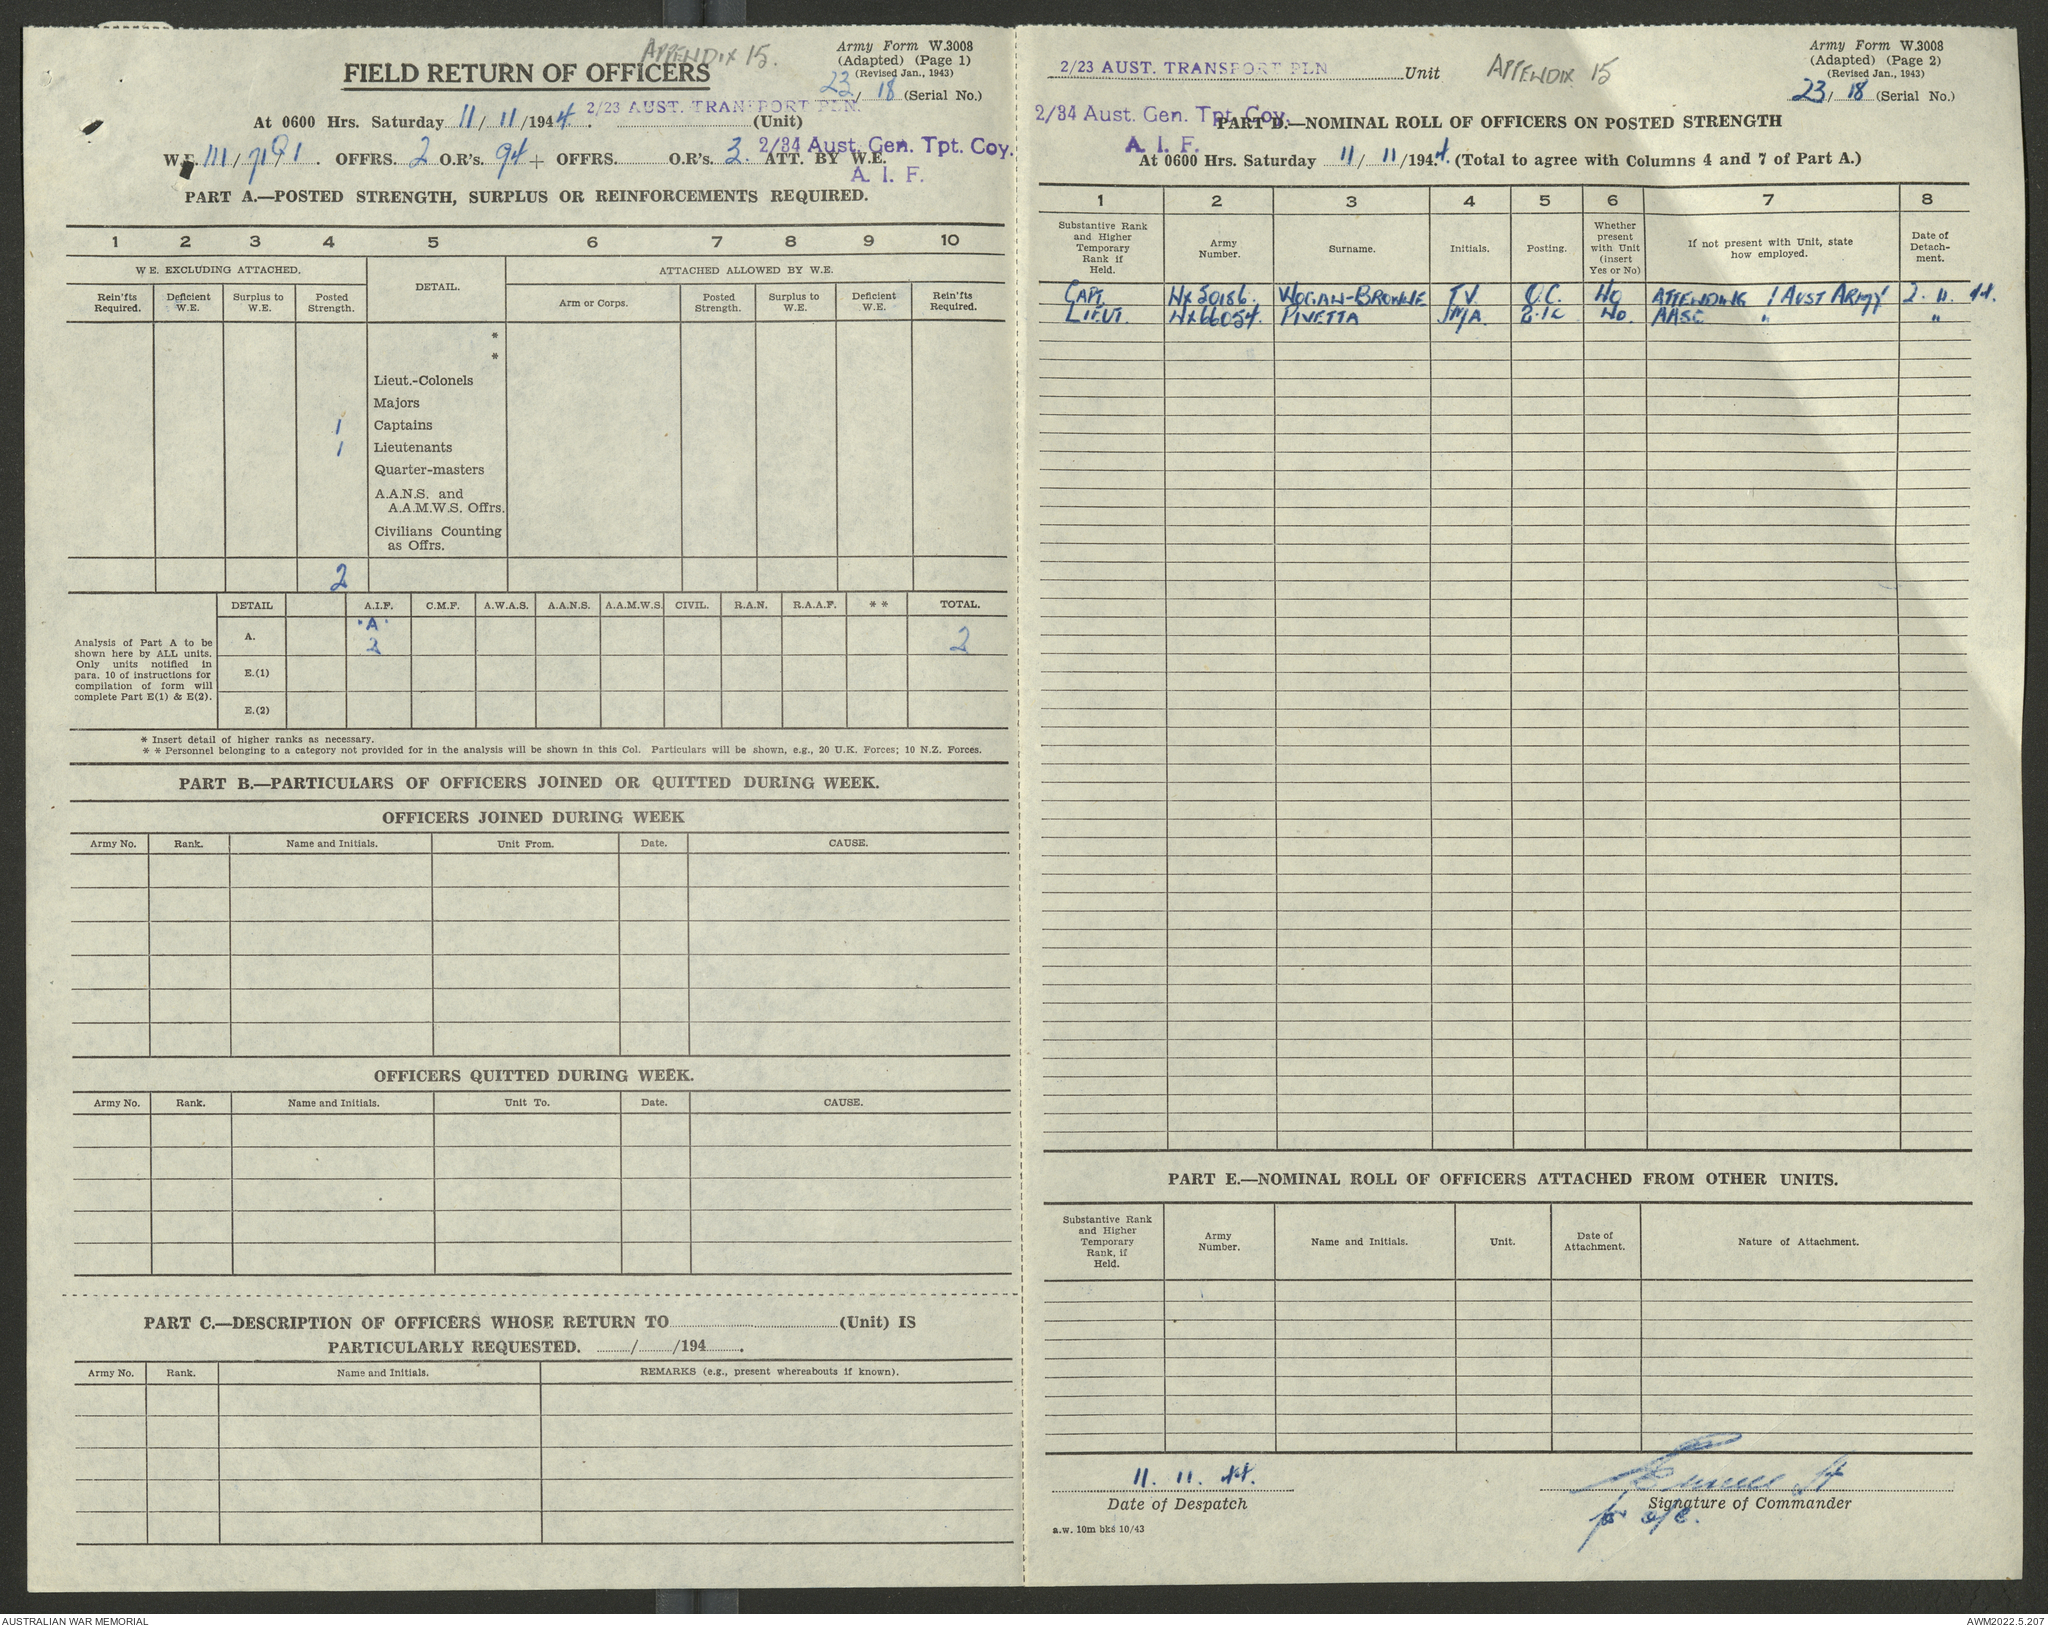 APPENDIX 15.
Army Form W.3008
(Adapted) (Page 1)
(Revised Jan., 1943)
FIELD RETURN OF OFFICERS
23/ 18 (Serial No.)
2/23 AUST. TRANSPORT PLN.
At 0600 Hrs. Saturday 11/ 11 /1944. (Unit)
2/34 Aust. Gen. Tpt. Coy.
A. I. F.
W.E. III/ OFFRS. 2 O.R's. 94 + OFFRS. O.R's. 3. ATT. BY W.E.
PART A.—POSTED STRENGTH, SURPLUS OR REINFORCEMENTS REQUIRED.
1 2 3 4 5 6 7 8 9 10
W E. EXCLUDING ATTACHED. DETAIL. ATTACHED ALLOWED BY W.E.
Rein'fts Required. Deficient W.E. Surplus to W.E. Posted Strength. Arm or Corps. Posted Strength. Surplus to W.E. Deficient W.E. Rein'fts Required.
*
*
Lieut.-Colonels
Majors
1 Captains
1 Lieutenants
Quarter-masters
A.A.N.S. and
A.A.M.W.S. Offrs.
Civilians Counting
as Offrs.
2
DETAIL A.I.F. C.M.F. A.W.A.S. A.A.N.S. A.A.M.W.S. CIVIL. R.A.N. R.A.A.F. * * TOTAL.
Analysis of Part A to be
shown here by ALL units.
Only units notified in
para. 10 of instructions for
compilation of form will
complete Part E(1) & E(2).
A. "A" 2 2
E.(1)
E.(2)
* Insert detail of higher ranks as necessary.
* * Personnel belonging to a category not provided for in the analysis will be shown in this Col. Particulars will be shown, e.g., 20 U.K. Forces; 10 N.Z. Forces.
PART B.—PARTICULARS OF OFFICERS JOINED OR QUITTED DURING WEEK.
OFFICERS JOINED DURING WEEK
Army No. Rank. Name and Initials. Unit From. Date. CAUSE.
OFFICERS QUITTED DURING WEEK.
Army No. Rank. Name and Initials. Unit To. Date. CAUSE.
PART C.—DESCRIPTION OF OFFICERS WHOSE RETURN TO (Unit) IS
PARTICULARLY REQUESTED. / /194 .
Army No. Rank. Name and Initials. REMARKS (e.g., present whereabouts if known).
2/23 AUST. TRANSPORT PLN Unit APPENDIX 15
Army Form W.3008
(Adapted) (Page 2)
(Revised Jan., 1943)
23/ 18 (Serial No.)
2/34 Aust. Gen. Tpt. Coy.
A. I. F.
PART D.—NOMINAL ROLL OF OFFICERS ON POSTED STRENGTH
At 0600 Hrs. Saturday 11/ 11 /1944. (Total to agree with Columns 4 and 7 of Part A.)
1 2 3 4 5 6 7 8
Substantive Rank and Higher Temporary Rank if Held. Army Number. Surname. Initials. Posting. Whether present with Unit (insert Yes or No) If not present with Unit, state how employed. Date of Detach-ment.
CAPT. NX30186. WOGAN-BROWNE T.V. O.C. No ATTENDING 1 AUST ARMY 2. 11. 44.
LIEUT. NX66054. PIVETTA J.M.A. 2.I.C No. AASC " "
PART E.—NOMINAL ROLL OF OFFICERS ATTACHED FROM OTHER UNITS.
Substantive Rank and Higher Temporary Rank, if Held. Army Number. Name and Initials. Unit. Date of Attachment. Nature of Attachment.
11. 11. 44.
Date of Despatch
Signature of Commander
for o/c.
a.w. 10m bks 10/43
AUSTRALIAN WAR MEMORIAL
AWM2022.5.207